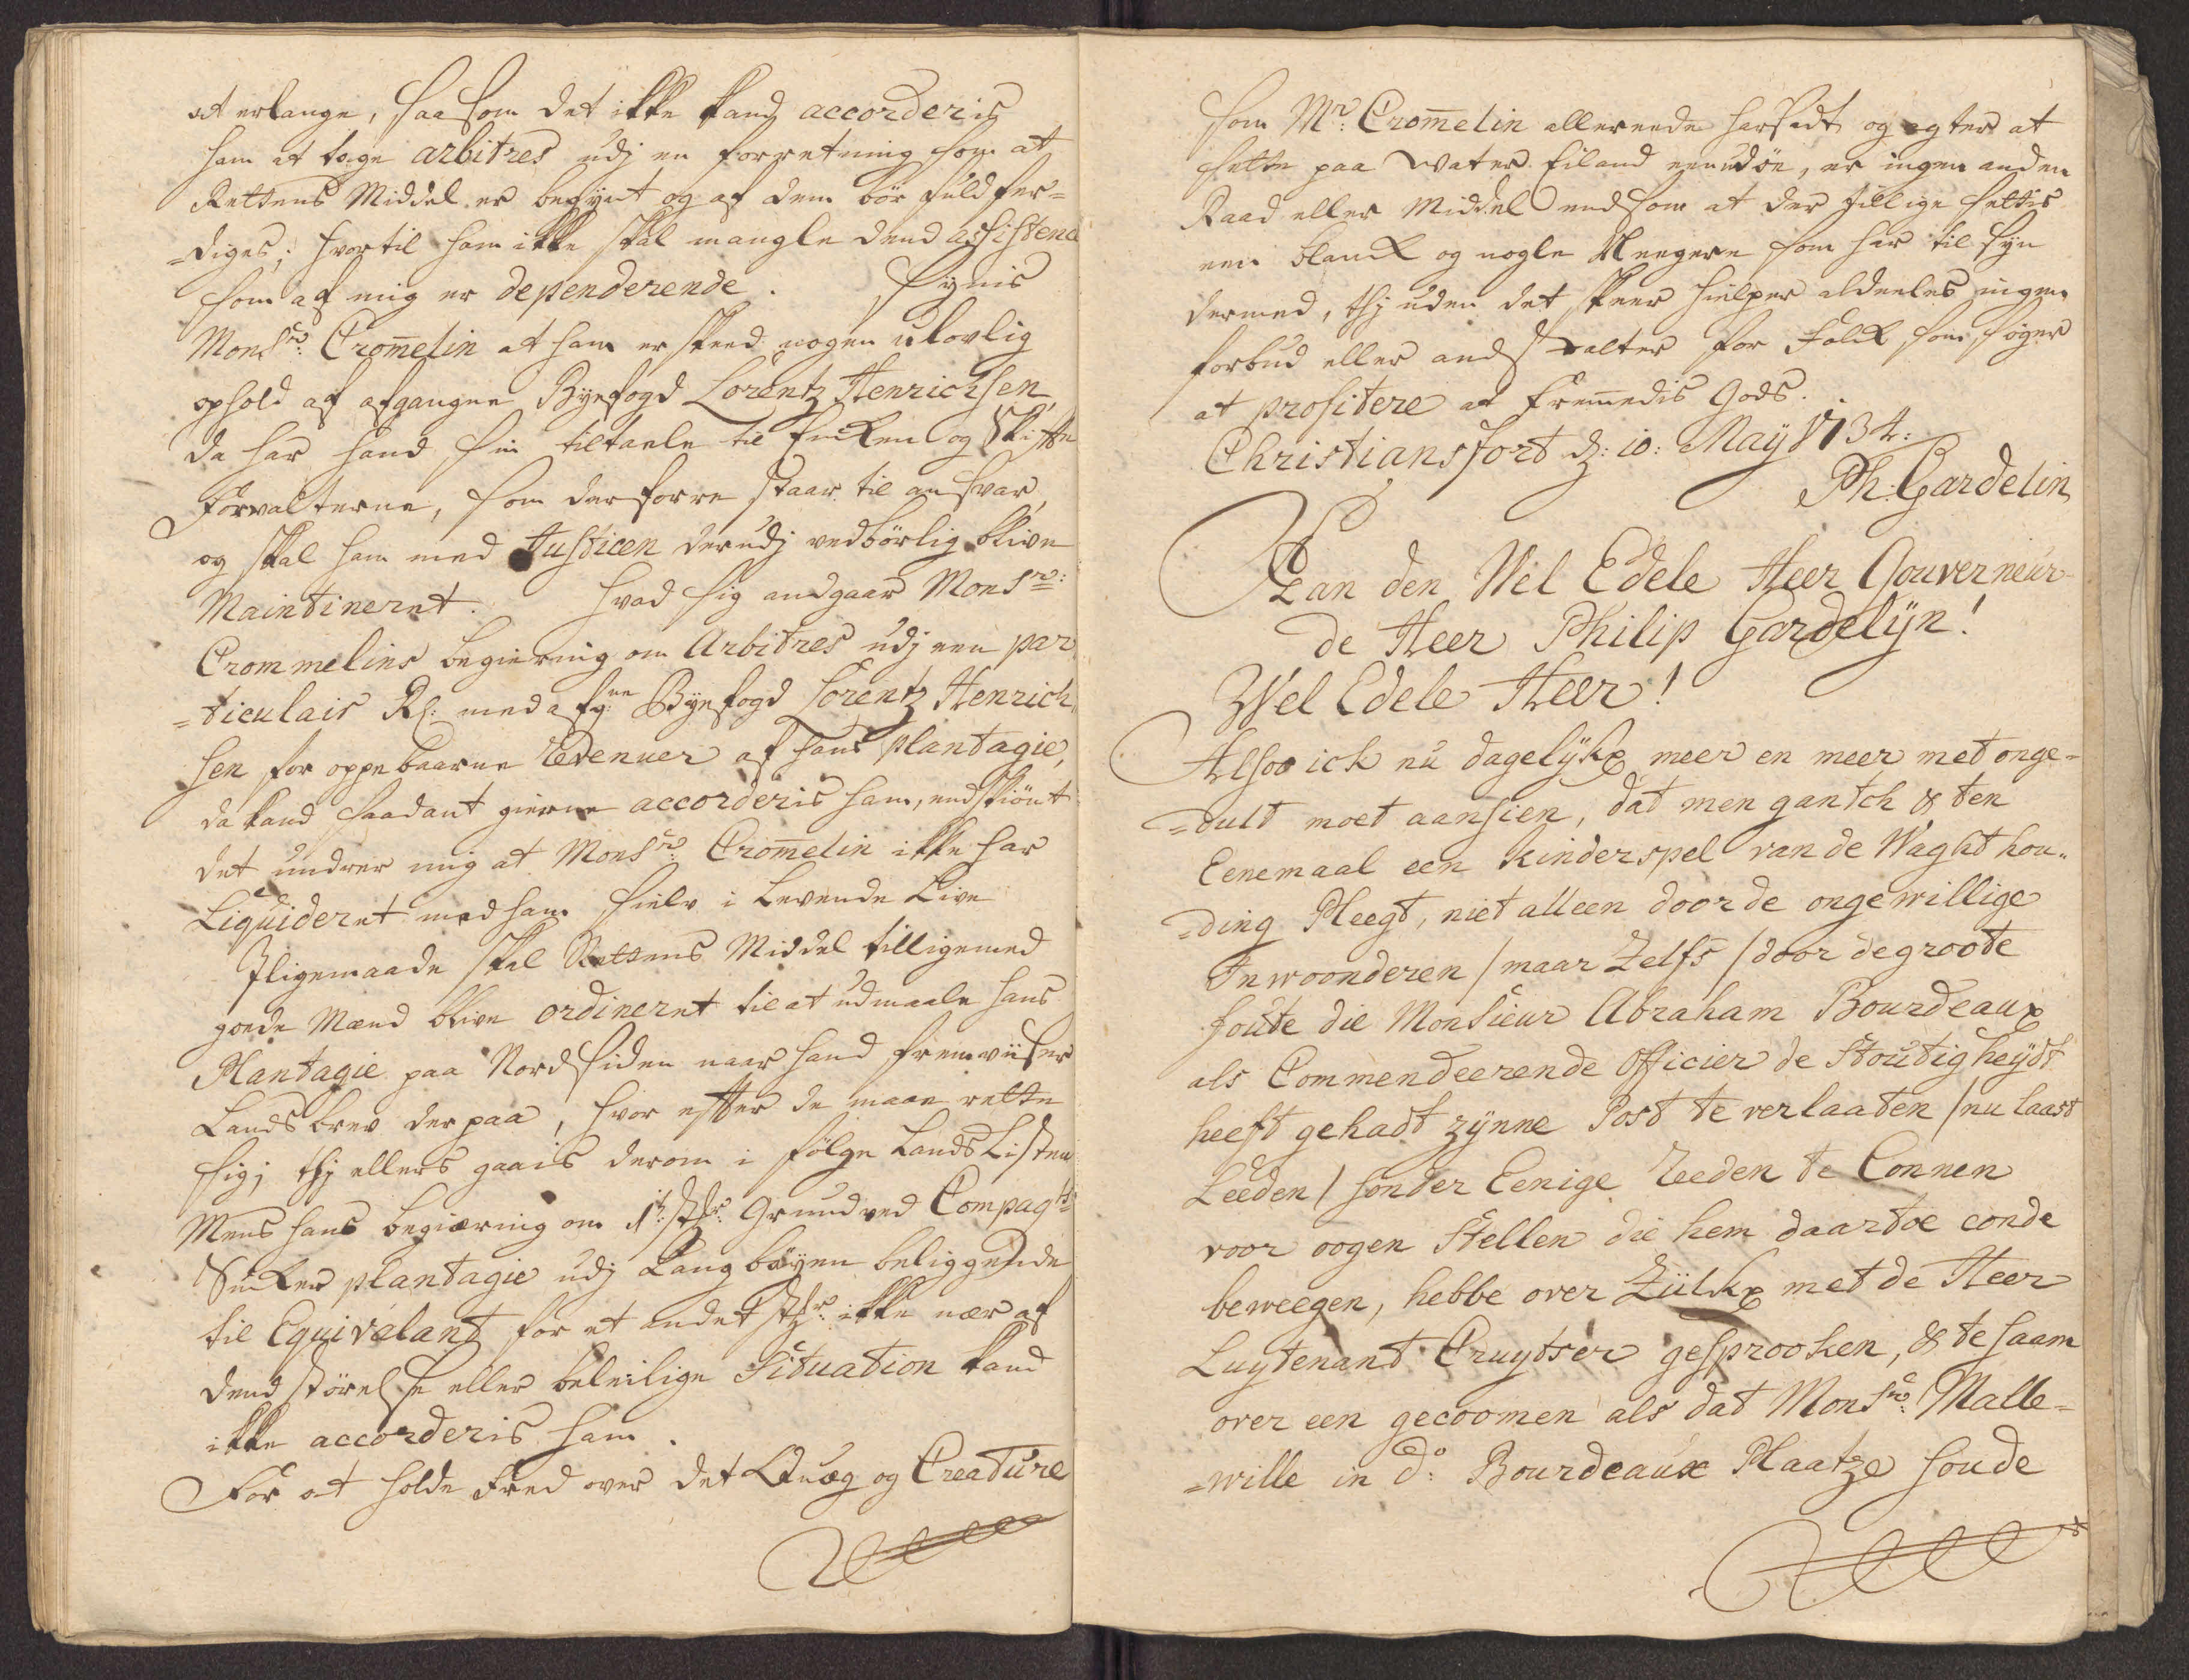 at erlange, saasom det ikke kand accorderis
ham at tage arbitres udj en forretning som at
Rettens Middel er begynt og af dem bör fuldfær=
=diges; hvortil ham ikke skal mangle dend assistence
som af mig er dependerende. Synis
Monsr: Crom̄elin at ham er skeed nogen ulovlig
ophold af afgangne Byefogd Lorentz Henrichsen,
da har hand sin tiltaele til Enken og Skifte
Forvalterne, som derforre staar til ansvar,
og skal ham med Justicen derudj vedbörlig blive
Maintineret. Hvad sig andgaar Monsr:
Crommelins begiering om Arbitres udj een par
=ticulair Rg: med afgne Byefogd Lorentz Henrich,,
sen for oppebaarne Revenuer af hans plantagie,
da kand saadant gierne accorderis ham, endskiönt
det undrer mig at Monsr: Crom̄elin ikke har
Liquideret med ham sielv i Levende Live
Iligemaade skal Rettens Middel tilligemed
goede Mænd blive ordineret til at udmaale hans
Plantagie paa Nordsiden naar hand fremviiser
Landsbrev derpaa, hvor efter de maae rette
sig; thj ellers gaais derom i fölge Lands Listen
Mens hans begiæring om 1t: Stkr: Grund ved Compagts:
Sucker plantagie udj Lang bayen beliggende
til Equivalant for et andet Stkr: ikke nær af
dend störelse eller beleilige Situation kand
ikke accorderis ham.
For at holde Fred over det Quæg og Creature
som Mr: Crom̄elin allereede har sadt og agter at
sette paa Water Eiland eenudöe, er ingen anden
Raad eller Middel end som at der tillige settis
een blanck og nogle Neegere som har til syn
dermed, thj uden det skeer hielper aldeeles ingen
forbud eller andstalter for Folck, som söger
at profitere af Frem̄edis Gods.
Christiansfort d: 10: Maÿ 1734:
Ph: Gardelin
Aan den Wel Edele Heer Gouverneur
de Heer Philip Gardelÿn!
Wel Edele Heer!
Alsoo ick nu dagelÿkx meer en meer met onge=
=dult moet aansien, dat men gantch & ten
Eenemaal een Kinderspel van de Waght hou,,
=ding Pleegt, niet alleen door de ongewillige
Inwoonderen / maar Zelfs / door de groote
foute die Monsieur Abraham Bourdeaux
als Commendeerende Officier de Stoutigheÿdt
heeft gehadt zÿnne Post te verlaaten / nu laast
Leeden / sonder Eenige Reeden te Connen
voor oogen Stellen die hem daartoe conde
beweegen, hebbe over Zulckx met de Heer
Luytenant Cruytser gesprooken, & te saam
over een gecoomen als dat Monsr: Malle=
=wille in do: Bourdeaux Plaatze soude